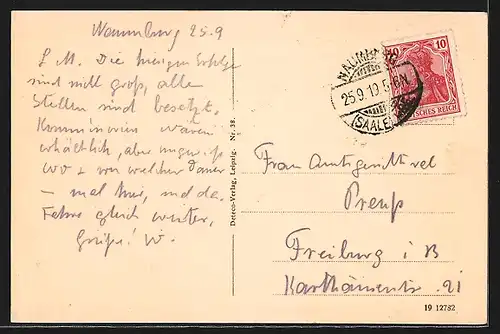 Naumburg 25.9
L. M. Die hiesigen Erfolge
sind nicht groß, alle
Stellen sind besetzt.
Kommissorien wären
erhältlich, aber ungewiß
wo + von welcher Dauer
– mal hier, mal da.
Fahre gleich weiter,
Grüße! W.
Deteco-Verlag, Leipzig. Nr. 38.
NAUMBURG
25.9.19.5-6N.
(SAALE)
10 10
DEUTSCHES REICH
Frau Amtsgerichtsrat
Preuß
Freiburg i. B
Karthäuserstr. 21
19 12782